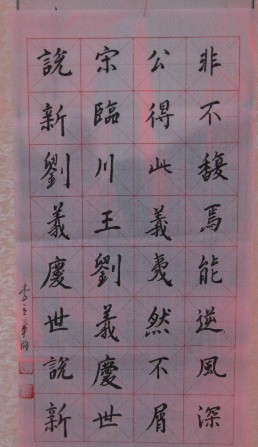 非不馥焉能逆風深
公得此義夷然不屑
宋臨川王劉義慶世
說新劉義慶世說新